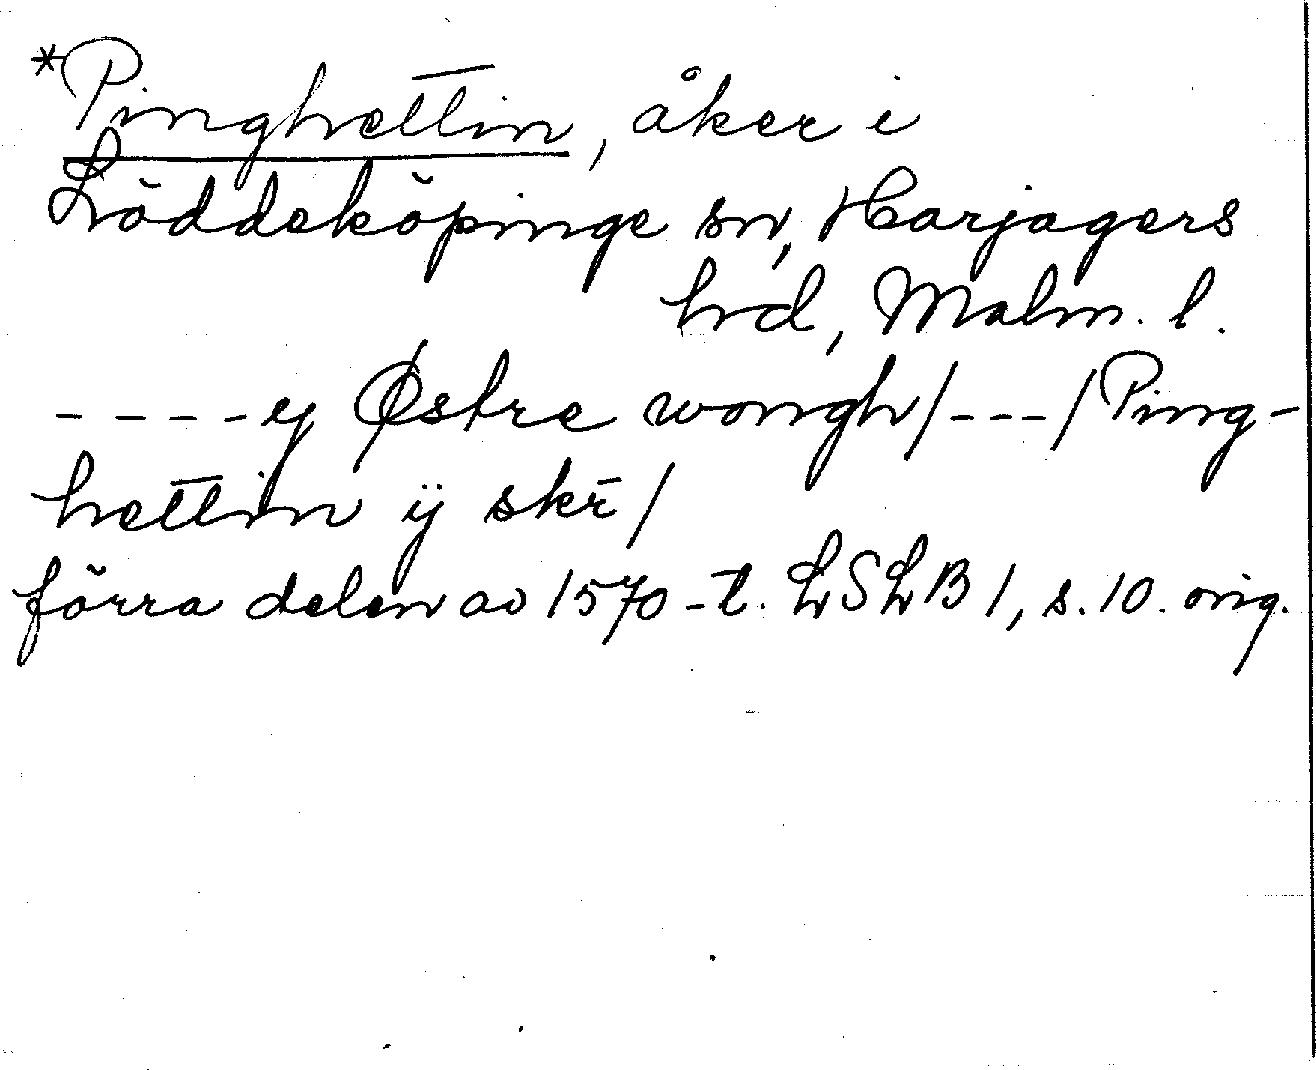 *Pinghettin, åker i
Löddeköpinge sn, Harjagers
hd, Malm. l.
----ÿ Østre wongh/---/Ping-
hettin ÿ skr̄/
förra delen av 1570-t. LSLB 1, s. 10. orig.